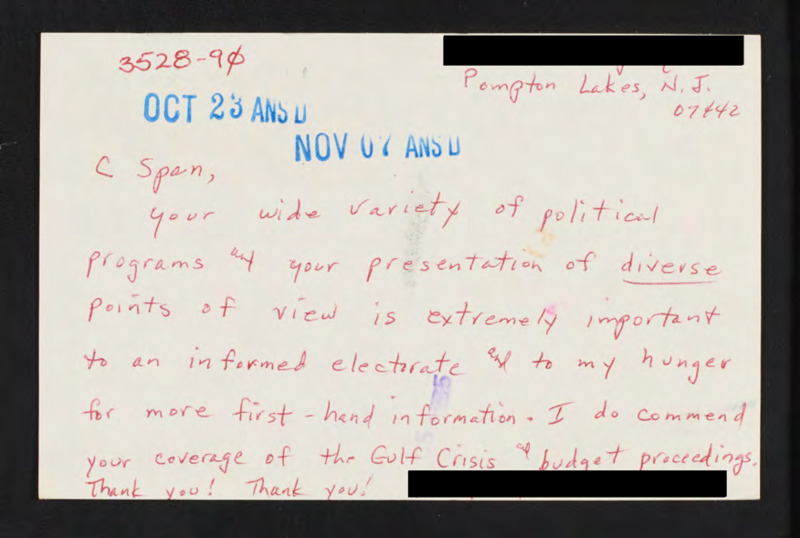 3528-90
Pompton Lakes, N.J.
07442
OCT 23 ANS'D
NOV 07 ANS'D
C Span,
your wide variety of political
programs and your presentation of diverse
points of view is extremely important
to an informed electorate and to my hunger
for more first-hand information. I do commend
your coverage of the Gulf Crisis and budget proceedings.
Thank you! Thank you!